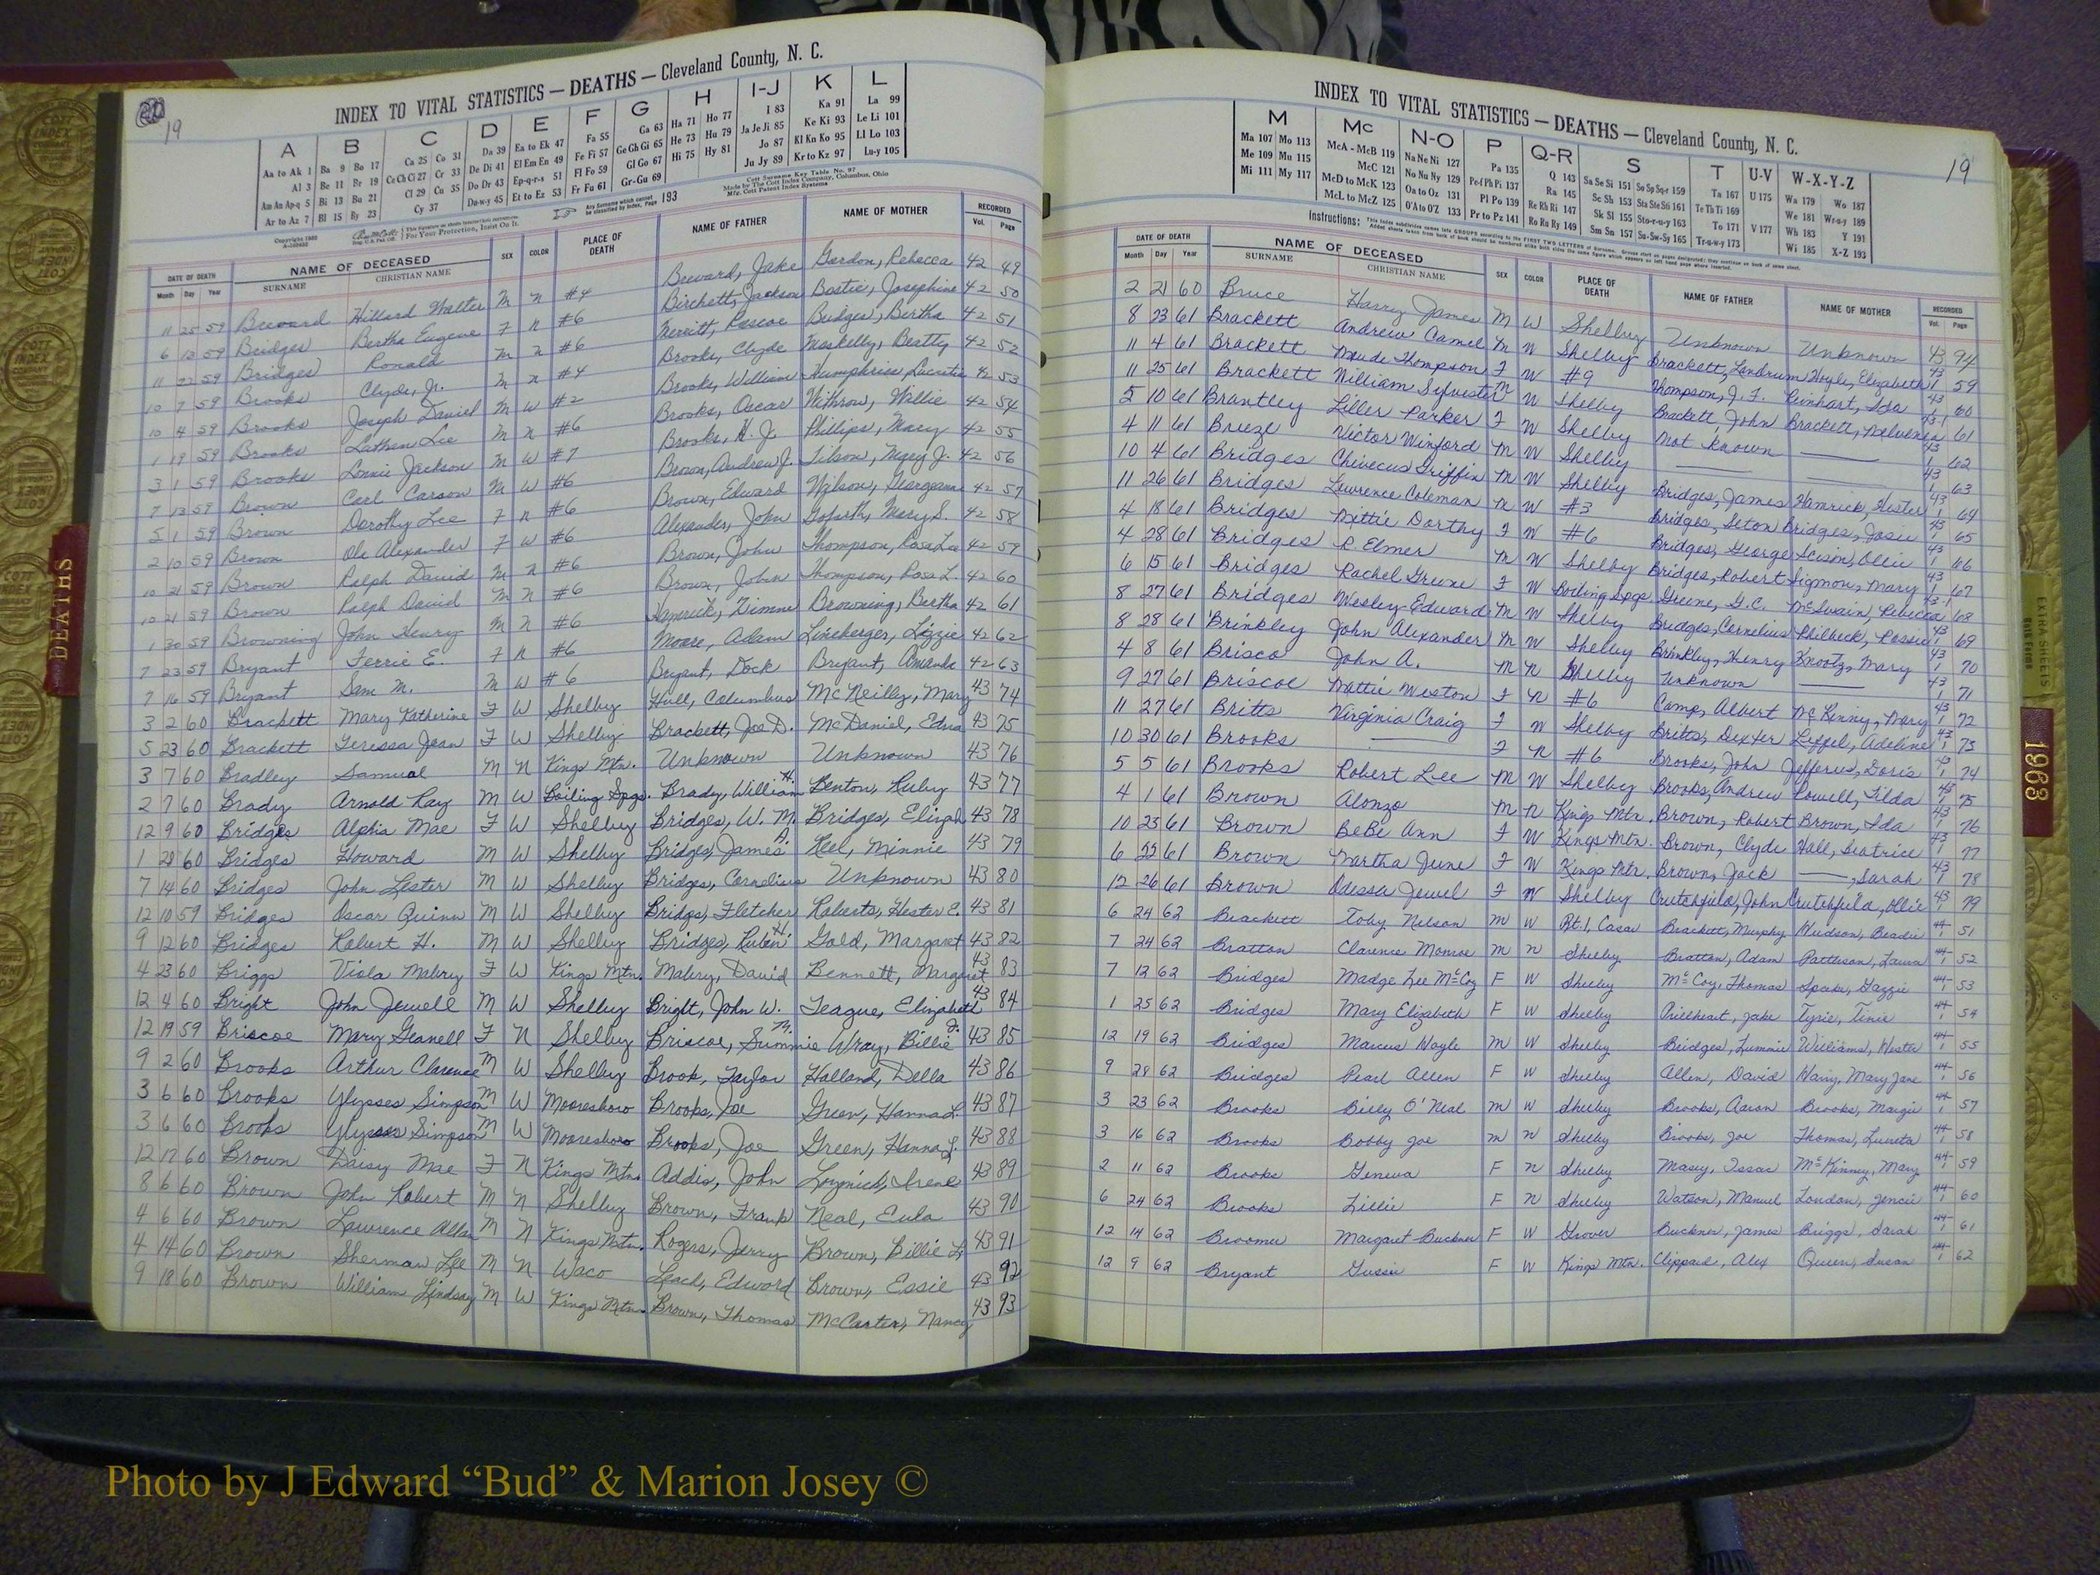 19
INDEX TO VITAL STATISTICS — DEATHS — Cleveland County, N. C.
A B C D E F G H I-J K L
Aa to Ak 1 Ba 9 Bo 17 Ca 25 Co 31 Da 39 Ea to Ek 47 Fa 55 Ga 63 Ha 71 Ho 77 I 83 Ka 91 La 99
Al 3 Be 11 Br 19 Ce Ch Ci 27 Cr 33 De Di 41 El Em En 49 Fe Fi 57 Ge Gh Gi 65 He 73 Hu 79 Ja Je Ji 85 Ke Ki 93 Le Li 101
Am An Ap-q 5 Bi 13 Bu 21 Cl 29 Cu 35 Do Dr 43 Ep-q-r-s 51 Fl Fo 59 Gl Go 67 Hi 75 Hy 81 Jo 87 Kl Kn Ko 95 Ll Lo 103
Ar to Az 7 Bl 15 By 23 Cy 37 Du-w-y 45 Et to Ez 53 Fr Fu 61 Gr-Gu 69 Ju Jy 89 Kr to Kz 97 Lu-y 105
Any Surname which cannot be classified by Index, Page 193
Cott Surname Key Table No. 97
Made by The Cott Index Company, Columbus, Ohio
Mfg. Cott Patent Index Systems
For Your Protection, Insist On It.
DATE OF DEATH NAME OF DECEASED SEX COLOR PLACE OF DEATH NAME OF FATHER NAME OF MOTHER RECORDED
Month Day Year SURNAME CHRISTIAN NAME Vol. Page
11 25 59 Brevard Hillard Walter M N #4 Brevard, Jake Gordon, Rebecca 42 49
6 12 59 Bridges Bertha Eugene F N #6 Birchett, Jackson Bostic, Josephine 42 50
11 22 59 Bridges Ronald M N #6 Merritt, Roscoe Bridges, Bertha 42 51
10 7 59 Brooks Clyde, Jr. M N #4 Brooks, Clyde Beatty 42 52
10 4 59 Brooks Joseph Daniel M W #2 Brooks, William Humphries, Lucretia 42 53
1 19 59 Brooks Lee M N #6 Brooks, Oscar Withrow, Willie 42 54
3 1 59 Brooks Lonnie Jackson M W #7 Brooks, H. J. Phillips, Macy 42 55
7 13 59 Brown Carl Carson M W #6 Brown, Andrew J. Tilson, Mary J. 42 56
5 1 59 Brown Dorothy Lee F N #6 Brown, Edward Wilson, Georgeanna 42 57
2 10 59 Brown Ola Alexander F W #6 Alexander, John Goforth, Mary S. 42 58
10 21 59 Brown Ralph David M N #6 Brown, John Thompson, Rosa Lee 42 59
10 21 59 Brown Ralph David M N #6 Brown, John Thompson, Rosa L. 42 60
1 30 59 Browning John Henry M N #6 Browning, Bertha 42 61
7 23 59 Bryant Ferrie E. F N #6 Moore, Adam Lineberger, Lizzie 42 62
7 16 59 Bryant Sam M. M W #6 Bryant, Dock Bryant, Amanda 42 63
3 2 60 Brackett Mary Katherine F W Shelby Hull, Columbus McNeilly, Mary 43 74
5 23 60 Brackett Teressa Jean F W Shelby Brackett, Joe D. McDaniel, Edna 43 75
3 7 60 Bradley Samual M N Kings Mtn. Unknown Unknown 43 76
2 7 60 Brady Arnold Ray M W Boiling Spgs. Brady, William H. Benton, Ruby 43 77
12 9 60 Bridges Alphia Mae F W Shelby Bridges, W. M. Bridges, Elizah 43 78
1 21 60 Bridges Howard M W Shelby Bridges, James A. Keel, Minnie 43 79
7 14 60 Bridges John Lester M W Shelby Bridges, Cornelius Unknown 43 80
12 10 59 Bridges Oscar Quinn M W Shelby Bridges, Fletcher Roberts, Hester E. 43 81
9 12 60 Bridges Robert H. M W Shelby Bridges, Ruben H. Gold, Margaret 43 82
4 23 60 Briggs Viola Mabry F W Kings Mtn. Mabry, David Bennett, Margaret 43 83
12 4 60 Bright John Jewell M W Shelby Bright, John W. Teague, Elizabeth 43 84
12 19 59 Briscoe Mary Geanell F N Shelby Briscoe, Summie M. Wray, Billie J. 43 85
9 2 60 Brooks Arthur Clarence M W Shelby Brook, Taylor Holland, Della 43 86
3 6 60 Brooks Ulysses Simpson M W Mooresboro Brooks, Joe Green, Hanna L. 43 87
3 6 60 Brooks Ulysses Simpson M W Mooresboro Brooks, Joe Green, Hanna L. 43 88
12 17 60 Brown Daisy Mae F N Kings Mtn. Addis, John Irene 43 89
8 6 60 Brown John Robert M N Shelby Brown, Frank Neal, Eula 43 90
4 6 60 Brown Lawrence Allen M N Kings Mtn. Rogers, Jerry Brown, Billie L. 43 91
4 14 60 Brown Sherman Lee M N Waco Leach, Edword Brown, Essie 43 92
9 18 60 Brown William Lindsay M W Kings Mtn. Brown, Thomas McCarter, Nancy 43 93
INDEX TO VITAL STATISTICS — DEATHS — Cleveland County, N. C.
19
M Mc N-O P Q-R S T U-V W-X-Y-Z
Ma 107 Mo 113 McA - McB 119 Na Ne Ni 127 Pa 135 Q 143 Sa Se Si 151 So Sp Sq-r 159 Ta 167 U 175 Wa 179 Wo 187
Me 109 Mu 115 McC 121 No Nu Ny 129 Pe-f Ph Pi 137 Ra 145 Sc Sh 153 Sta Ste Sti 161 Te Th Ti 169 We 181 Wr-u-y 189
Mi 111 My 117 McD to McK 123 Oa to Oz 131 Pl Po 139 Re Rh Ri 147 Sk Sl 155 Sto-r-u-y 163 To 171 V 177 Wh 183 Y 191
McL to McZ 125 O'A to O'Z 133 Pr to Pz 141 Ro Ru Ry 149 Sm Sn 157 Su-Sw-Sy 165 Tr-u-w-y 173 Wi 185 X-Z 193
Instructions:
DATE OF DEATH NAME OF DECEASED SEX COLOR PLACE OF DEATH NAME OF FATHER NAME OF MOTHER RECORDED
Month Day Year SURNAME CHRISTIAN NAME Vol. Page
2 21 60 Bruce Harry James M W Shelby Unknown Unknown 43 94
8 23 61 Brackett Andrew Camel M W Shelby Brackett, Landrum Hoyle, Elizabeth 43 1 59
11 4 61 Brackett Maude Thompson F W #9 Thompson, J. F. Reinhart, Ida 43 1 60
11 25 61 Brackett William Sylvester M W Shelby Brackett, John Brackett, Melvenia 43 1 61
5 10 61 Brantley Liller Parker F W Shelby Not Known — 43 1 62
4 11 61 Breeze Victor Winford M W Shelby — — 43 1 63
10 4 61 Bridges Chivecus Griffin M W Shelby Bridges, James Hamrick, Hester 43 1 64
11 26 61 Bridges Lawrence Coleman M W #3 Bridges, Seton Bridges, Josie 43 1 65
4 18 61 Bridges Mittie Dorthy F W #6 Bridges, George Ollie 43 1 66
4 28 61 Bridges R. Elmer M W Shelby Bridges, Robert Sigmon, Mary 43 1 67
6 15 61 Bridges Rachel Greene F W Boiling Spgs. Greene, G.C. McSwain, Rebecca 43 1 68
8 27 61 Bridges Wesley Edward M W Shelby Bridges, Cornelius Philbeck, Possie 43 1 69
8 28 61 Brinkley John Alexander M W Shelby Brinkley, Henry Knootz, Mary 43 1 70
4 8 61 Brisco John A. M N Shelby Unknown — 43 1 71
9 27 61 Briscoe Mattie Weston F N #6 Camp, Albert McKinny, Mary 43 1 72
11 27 61 Britts Virginia Craig F W Shelby Britts, Dexter Leffel, Adeline 43 1 73
10 30 61 Brooks — F N #6 Brooks, John Jefferies, Doris 43 1 74
5 5 61 Brooks Robert Lee M W Shelby Brooks, Andrew Powell, Tilda 43 1 75
4 1 61 Brown Alonzo M N Kings Mtn. Brown, Robert Brown, Ida 43 1 76
10 23 61 Brown BeBe Ann F W Kings Mtn. Brown, Clyde Hall, Beatrice 43 1 77
6 22 61 Brown Martha June F W Kings Mtn. Brown, Jack —, Sarah 43 1 78
12 26 61 Brown Odessa Jewel F W Shelby Crutchfield, John Crutchfield, Ollie 43 1 79
6 24 62 Brackett Toby Nelson M W Rt. 1, Casar Brackett, Murphy Hudson, Beadie 44 1 51
7 24 62 Bratton Clarence Monroe M N Shelby Bratton, Adam Patterson, Laura 44 1 52
7 12 62 Bridges Madge Lee McCoy F W Shelby McCoy, Thomas Speake, Gazzie 44 1 53
1 25 62 Bridges Mary Elizabeth F W Shelby Jake Tyrie, Tinie 44 1 54
12 19 62 Bridges Marcus Hoyle M W Shelby Bridges, Lummie Williams, 44 1 55
9 28 62 Bridges Pearl Allen F W Shelby Allen, David Mary Jane 44 1 56
3 23 62 Brooks Billy O'Neal M W Shelby Brooks, Aaron Brooks, Margie 44 1 57
3 16 62 Brooks Bobby Joe M N Shelby Brooks, Joe Thomas, Lucreta 44 1 58
2 11 62 Brooks Geneva F N Shelby Massey, Issac McKinney, Mary 44 1 59
6 24 62 Brooks Lillie F N Shelby Watson, Manuel London, Jencie 44 1 60
12 14 62 Broomer Margaret Buckner F W Grover Buckner, James Briggs, Sarah 44 1 61
12 9 62 Bryant Gussie F W Kings Mtn. Clippard, Alex Queen, Susan 44 1 62
DEATHS
EXTRA SHEETS
1963
Photo by J Edward “Bud” & Marion Josey ©